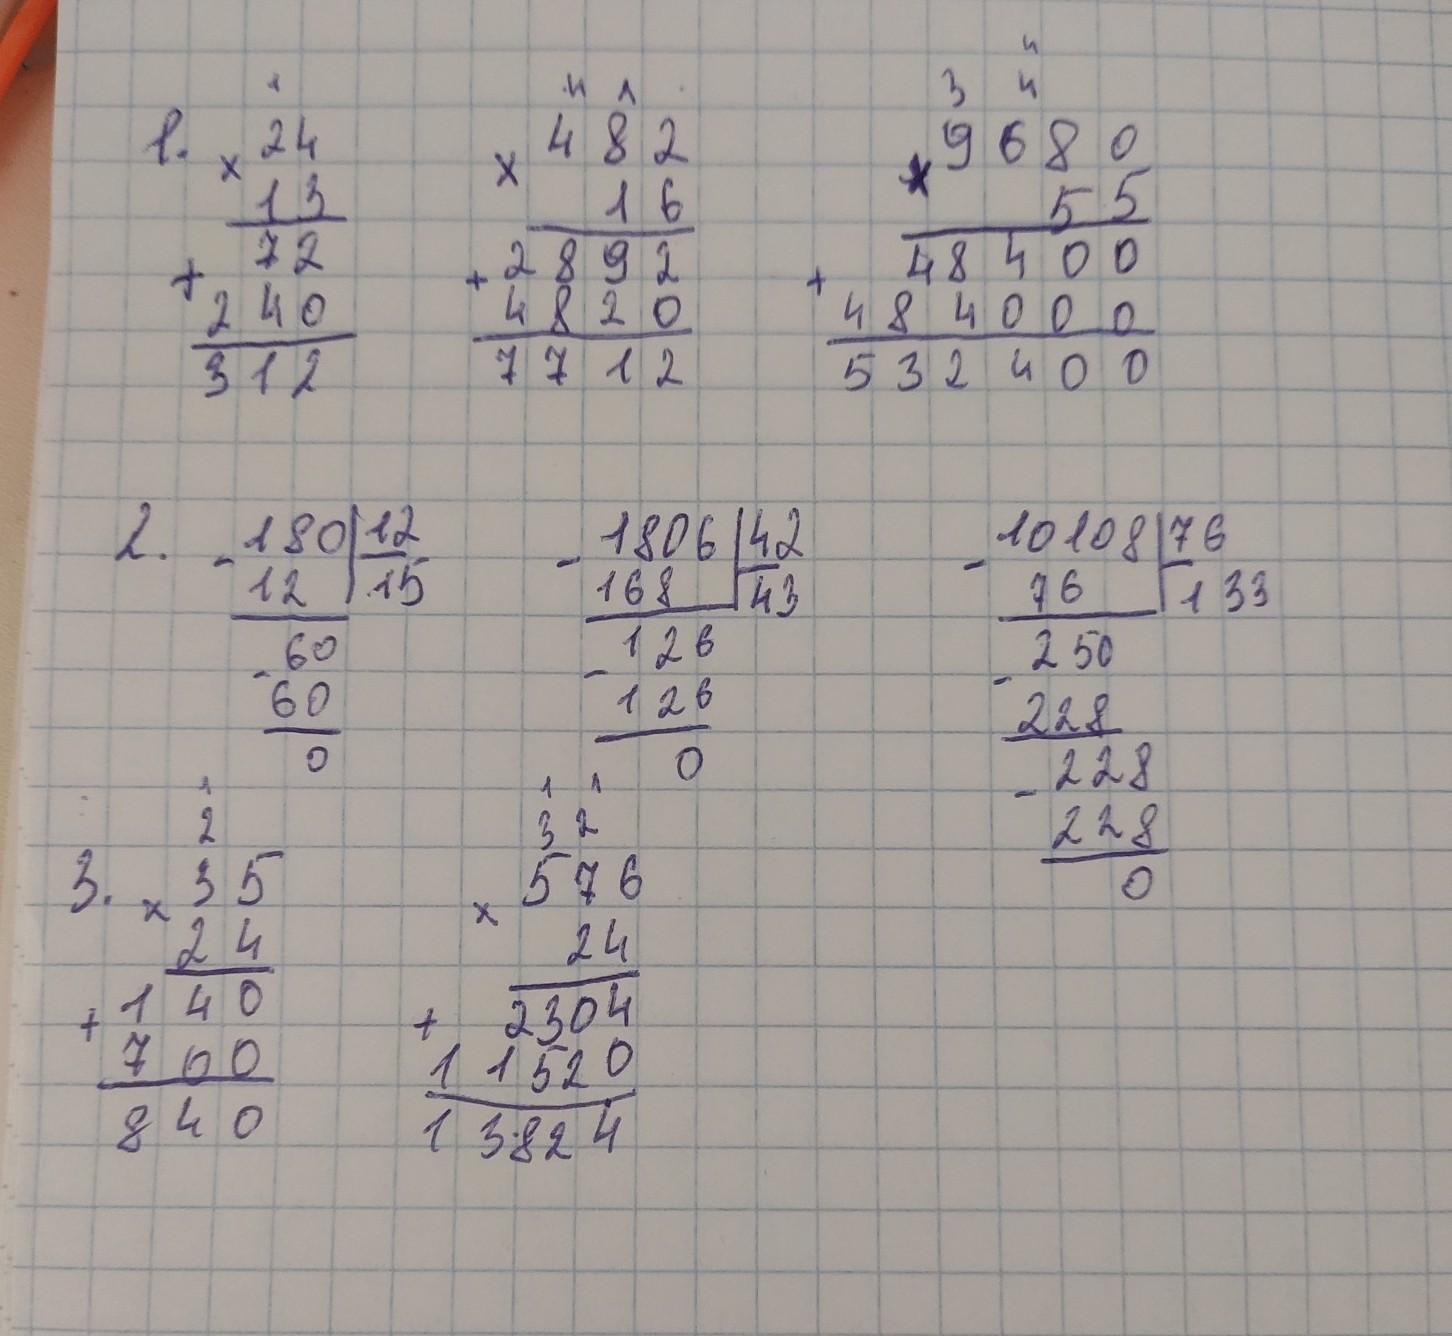 1
24
1.
×
13
72
+
240
312
4 1
482
×
16
2892
+
4820
7712
4
3 4
9680
×
55
48400
+
484000
532400
2.
- 180 | 12
12 | 15
- 60
60
0
- 1806 | 42
168 | 43
- 126
126
0
- 10108 | 76
76 | 133
- 250
228
- 228
228
0
1
2
3.
× 35
24
140
+
700
840
1 1
3 2
× 576
24
2304
+
11520
13824